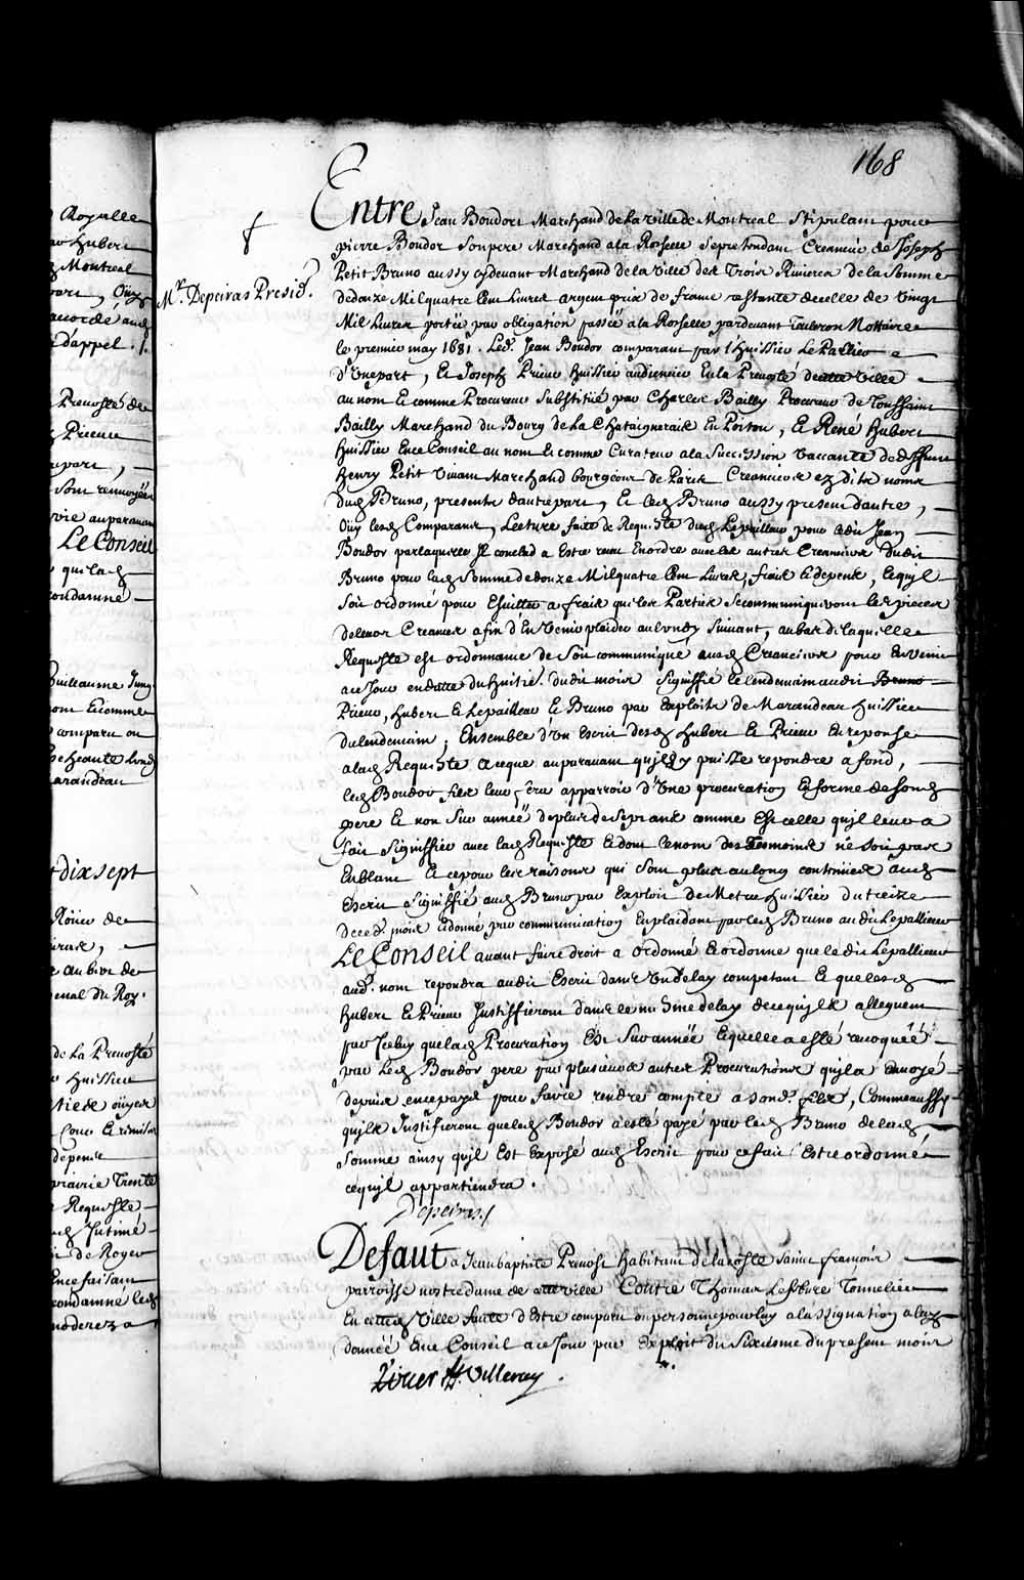 168
Royalle
Hubert
Montreal
part, Ouy
accordé aud
d'appel ./.
Prevosté de
Prieur
part,
sont renvoyée
auparavan
Le Conseil
qui lad
condamné
Guilleaume
comme
comparu ou
dix sept
de
au bire de
du Roy.
de La Prevosté
huissier
ouyes
depense
prairie Trente
Requeste
Intimé
de Royer
Ence faisant
condamné led
moderez a
Mr. Depeiras Presid.
Entre Jean Boudor Marchand de la ville de Montreal stipulant pour
pierre Boudor son pere Marchand a la Rochelle se pretendant Creancier de Joseph
Petit Bruno aussy cydevant Marchand de la ville des Trois Rivieres de la somme
de douze Mil quatre Cent Livres argent prix de france restante de celle de Vingt
Mil Livres portée par obligation passée a la Rochelle pardevant Teuleron Nottaire
le premier may 1681. Led. Jean Boudor comparant par l'huissier Le Pallieur
d'Une part, Et Joseph Prieur huissier audiencier En la Prevosté de cette ville
au nom Et comme Procureur Substitué par Charles Bailly Procureur de Toussaint
Bailly Marchand du Bourg de La Chataigneraie En Poitou, Et René hubert
huissier En ce Conseil au nom Et comme Curateur a la Succession vaccante de deffunt
henry Petit Vivant Marchand bourgeois de Paris Creanciers ez dits noms
dud Bruno, presents d'autre part, Et led Bruno aussy present d'autre,
Ouy lesd Comparans, Lecture faite de Requeste dud Lepailleur pour ledit Jean
Boudor par laquelle Il conclud a Estre receu En ordre avec les autres Creanciers dudit
Bruno pour lad Somme de douze Mil quatre Cent Livres, frais Et depens, Et qu'il
soit ordonné pour Eviter a frais que les Parties se communiqueront les pieces
de leurs Creances afin d'En Venir plaider au lundy suivant, au bas de laquelle
Requeste est ordonnance de soit communiqué ausd Creanciers pour En venir
a ce Jour en datte du huitie. dudit mois signiffié le lendemain audit Bruno
Prieur, hubert Et Lepailleur Et Bruno par Exploits de Marandeau huissier
du lendemain, Ensemble d'Un Escrit desd hubert Et Prieur En reponse
a lad Requeste a ce que auparavant qu'ils y puisse repondre a fond,
led Boudor fils leur fera apparroir d'Une procuration En forme de sond
pere Et non Sur année de plus de Sept ans comme Est celle qu'il leur a
fait Signiffier avec lad Requeste Et dont le nom des Tesmoins ne soit pas
En blanc Et ce pour les raisons qui sont plus au long contenües aud
Escrit signiffié aud Bruno par Exploit de Metru huissier du treize
de ced. mois Et donné par communication En plaidant par led Bruno audit Lepallieur
Le Conseil avant faire droit a ordonné Et ordonne que ledit Lepallieur
aud. nom repondra audit Escrit dans Un delay competant Et que lesd
hubert Et Prieur Justiffieront dans le mesme delay de ce qu'ils alleguent
par Iceluy que lad Procuration Est Sur année Et quelle a esté revoquée
par Led Boudor pere par plusieurs autres Procurations qu'il a Envoyé
depuis en ce pays pour faire rendre compte a sond. fils, Comme aussy
qu'ils Justiffieront que led Boudor a esté payé par led Bruno de lad
somme ainsy qu'il Est Exposé aud Escrit pour ce fait Estre ordonné
ce qu'il appartiendra.
Depeiras./.
Defaut a Jean baptiste Prevost habitant de la coste Saint francois
parroisse nostre dame de cette ville Contre Thomas Lefebvre Tonnelier
En cette d Ville faute d'Estre comparu ou personne pour luy a l'assignation a luy
donnée En ce Conseil a ce Jour par Exploit du Sixiesme du present mois
Roüer de Villeray.